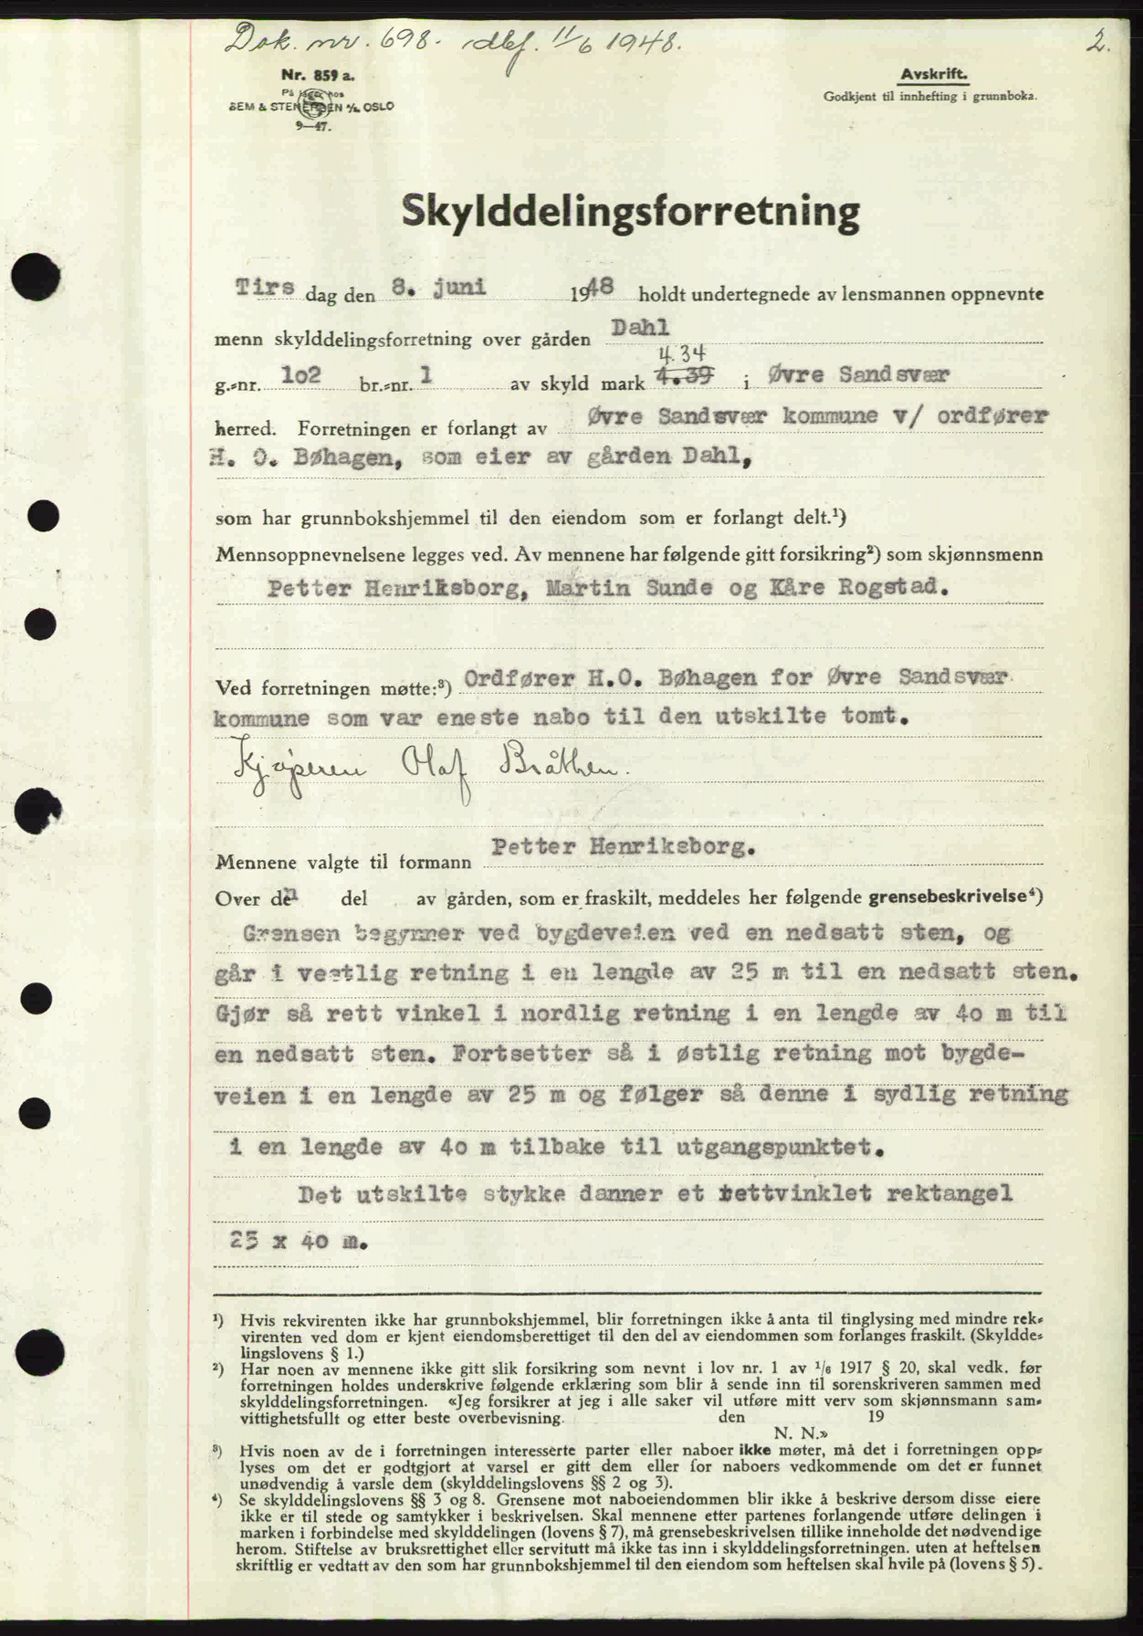 Dok. nr. 698. idbf. 11/6 1948.
2.
Nr. 859 a.
På lager hos
SEM & STENERSEN A/S OSLO
9—47.
Avskrift.
Godkjent til innhefting i grunnboka.
Skylddelingsforretning
Tirs dag den 8. juni 1948 holdt undertegnede av lensmannen oppnevnte
menn skylddelingsforretning over gården Dahl
4.34
g.-nr. 1o2 br.-nr. 1 av skyld mark 4.39 i Øvre Sandsvær
herred. Forretningen er forlangt av Øvre Sandsvær kommune v/ ordfører
H. O. Bøhagen, som eier av gården Dahl,
som har grunnbokshjemmel til den eiendom som er forlangt delt.¹)
Mennsoppnevnelsene legges ved. Av mennene har følgende gitt forsikring²) som skjønnsmenn
Petter Henriksborg, Martin Sunde og Kåre Rogstad.
Ved forretningen møtte:³) Ordfører H.O. Bøhagen for Øvre Sandsvær
kommune som var eneste nabo til den utskilte tomt.
Kjøperen Olaf Bråthen.
Mennene valgte til formann Petter Henriksborg.
Over den del av gården, som er fraskilt, meddeles her følgende grensebeskrivelse⁴)
Grensen begynner ved bygdeveien ved en nedsatt sten, og
går i vestlig retning i en lengde av 25 m til en nedsatt sten.
Gjør så rett vinkel i nordlig retning i en lengde av 4o m til
en nedsatt sten. Fortsetter så i østlig retning mot bygde-
veien i en lengde av 25 m og følger så denne i sydlig retning
i en lengde av 4o m tilbake til utgangspunktet.
Det utskilte stykke danner et rettvinklet rektangel
25 x 40 m.
¹) Hvis rekvirenten ikke har grunnbokshjemmel, blir forretningen ikke å anta til tinglysing med mindre rek-
virenten ved dom er kjent eiendomsberettiget til den del av eiendommen som forlanges fraskilt. (Skyldde-
lingslovens § 1.)
²) Har noen av mennene ikke gitt slik forsikring som nevnt i lov nr. 1 av 1/6 1917 § 20, skal vedk. før
forretningen holdes underskrive følgende erklæring som blir å sende inn til sorenskriveren sammen med
skylddelingsforretningen. «Jeg forsikrer at jeg i alle saker vil utføre mitt verv som skjønnsmann sam-
vittighetsfullt og etter beste overbevisning. den 19
N. N.»
³) Hvis noen av de i forretningen interesserte parter eller naboer ikke møter, må det i forretningen opp-
lyses om det er godtgjort at varsel er gitt dem eller for naboers vedkommende om det er funnet
unødvendig å varsle dem (skylddelingslovens §§ 2 og 3).
⁴) Se skylddelingslovens §§ 3 og 8. Grensene mot naboeiendommen blir ikke å beskrive dersom disse eiere
ikke er til stede og samtykker i beskrivelsen. Skal mennene etter partenes forlangende utføre delingen i
marken i forbindelse med skylddelingen (lovens § 7), må grensebeskrivelsen tillike inneholde det nødvendige
herom. Stiftelse av bruksrettighet eller servitutt må ikke tas inn i skylddelingsforretningen. uten at heftelsen
skriftlig er vedtatt av den som har grunnbokshjemmel til den eiendom som heftelsen skal hvile på (lovens § 5).